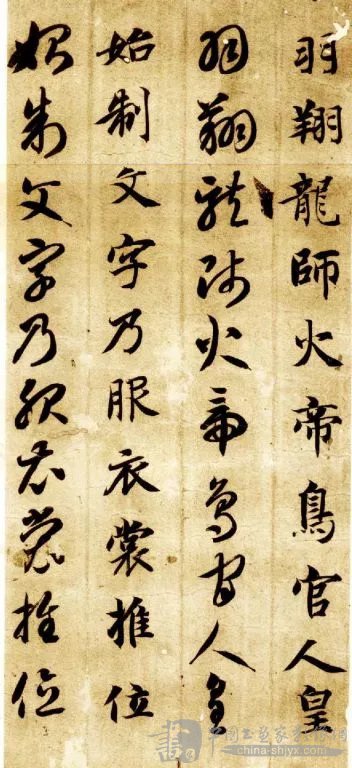 羽翔龍師火帝鳥官人皇
羽翔龍師火帝鳥官人皇
始制文字乃服衣裳推位
始制文字乃服衣裳推位
china-shjyx.com